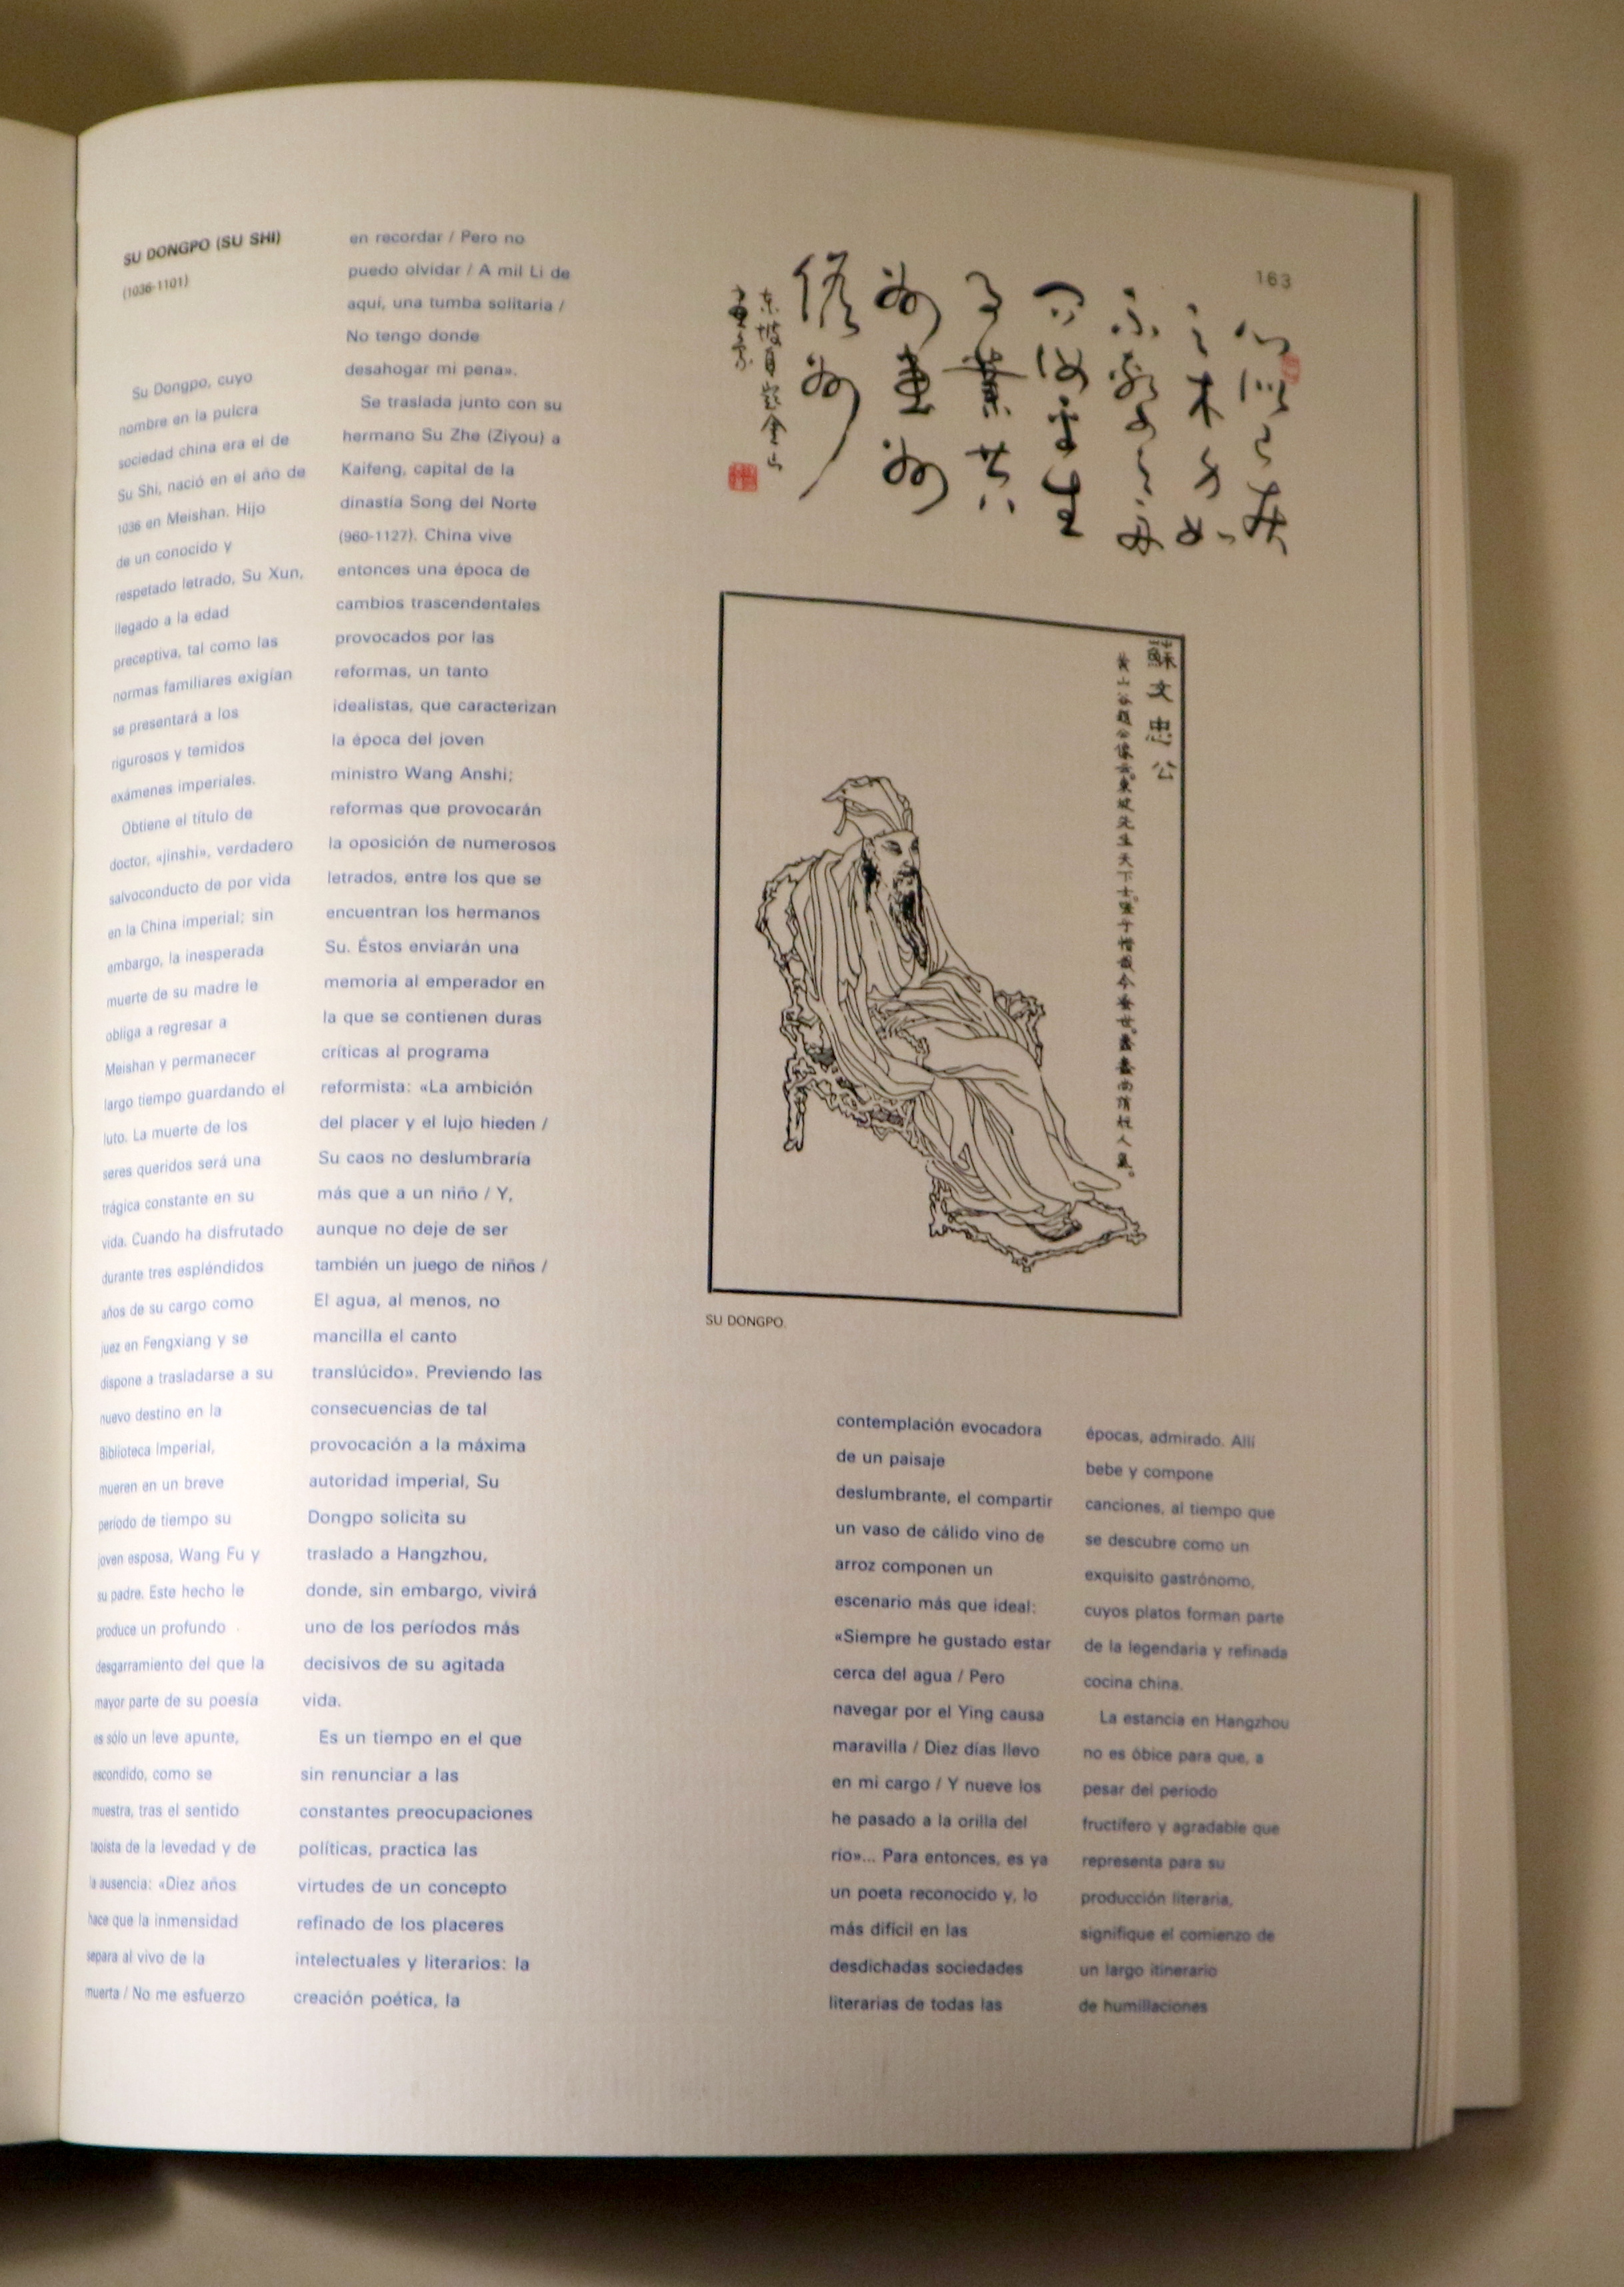 SU DONGPO (SU SHI)
(1036-1101)
Su Dongpo, cuyo
nombre en la pulcra
sociedad china era el de
Su Shi, nació en el año de
1036 en Meishan. Hijo
de un conocido y
respetado letrado, Su Xun,
llegado a la edad
preceptiva, tal como las
normas familiares exigían
se presentará a los
rigurosos y temidos
exámenes imperiales.
Obtiene el título de
doctor, «jinshi», verdadero
salvoconducto de por vida
en la China imperial; sin
embargo, la inesperada
muerte de su madre le
obliga a regresar a
Meishan y permanecer
largo tiempo guardando el
luto. La muerte de los
seres queridos será una
trágica constante en su
vida. Cuando ha disfrutado
durante tres espléndidos
años de su cargo como
juez en Fengxiang y se
dispone a trasladarse a su
nuevo destino en la
Biblioteca Imperial,
mueren en un breve
período de tiempo su
joven esposa, Wang Fu y
su padre. Este hecho le
produce un profundo
desgarramiento del que la
mayor parte de su poesía
es sólo un leve apunte,
escondido, como se
muestra, tras el sentido
taoísta de la levedad y de
la ausencia: «Diez años
hace que la inmensidad
separa al vivo de la
muerta / No me esfuerzo
en recordar / Pero no
puedo olvidar / A mil Li de
aquí, una tumba solitaria /
No tengo donde
desahogar mi pena».
Se traslada junto con su
hermano Su Zhe (Ziyou) a
Kaifeng, capital de la
dinastía Song del Norte
(960-1127). China vive
entonces una época de
cambios trascendentales
provocados por las
reformas, un tanto
idealistas, que caracterizan
la época del joven
ministro Wang Anshi;
reformas que provocarán
la oposición de numerosos
letrados, entre los que se
encuentran los hermanos
Su. Éstos enviarán una
memoria al emperador en
la que se contienen duras
críticas al programa
reformista: «La ambición
del placer y el lujo hieden /
Su caos no deslumbraría
más que a un niño / Y,
aunque no deje de ser
también un juego de niños /
El agua, al menos, no
mancilla el canto
translúcido». Previendo las
consecuencias de tal
provocación a la máxima
autoridad imperial, Su
Dongpo solicita su
traslado a Hangzhou,
donde, sin embargo, vivirá
uno de los períodos más
decisivos de su agitada
vida.
Es un tiempo en el que
sin renunciar a las
constantes preocupaciones
políticas, practica las
virtudes de un concepto
refinado de los placeres
intelectuales y literarios: la
creación poética, la
163
心似已灰
之木身如
不繫之舟
問汝平生
功業黃
州惠州
儋州
東坡自題金山
蘇文忠公
黃山谷題公像云東坡先生天下士嗟乎惜哉今蚤世蠢蠢尚消短人氣。
SU DONGPO.
contemplación evocadora
de un paisaje
deslumbrante, el compartir
un vaso de cálido vino de
arroz componen un
escenario más que ideal:
«Siempre he gustado estar
cerca del agua / Pero
navegar por el Ying causa
maravilla / Diez días llevo
en mi cargo / Y nueve los
he pasado a la orilla del
río»... Para entonces, es ya
un poeta reconocido y, lo
más difícil en las
desdichadas sociedades
literarias de todas las
épocas, admirado. Allí
bebe y compone
canciones, al tiempo que
se descubre como un
exquisito gastrónomo,
cuyos platos forman parte
de la legendaria y refinada
cocina china.
La estancia en Hangzhou
no es óbice para que, a
pesar del período
fructífero y agradable que
representa para su
producción literaria,
signifique el comienzo de
un largo itinerario
de humillaciones